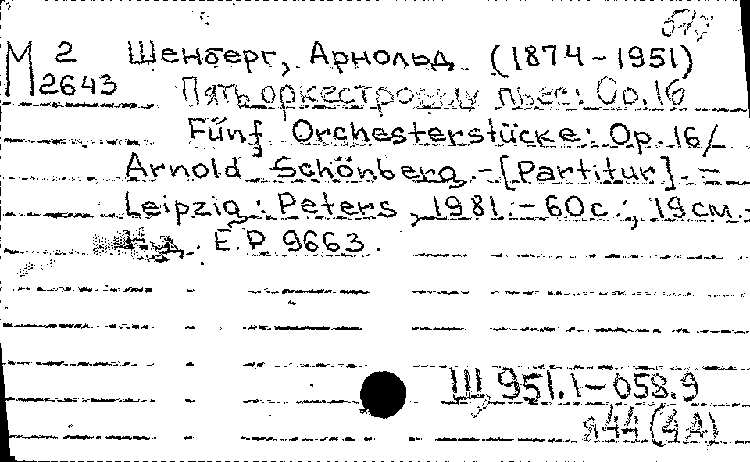 М 2 Шенберг, Арнольд (1874-1951)
2643 Пять оркестровых пьес: Op.16
Fünf Orchesterstücke: Op.16/
Arnold Schönberg.-[Partitur].-
Leipzig: Peters, 1981.-60с.; 19см.-
E.P 9663.
Щ 951.1-058.9
я44(4А)